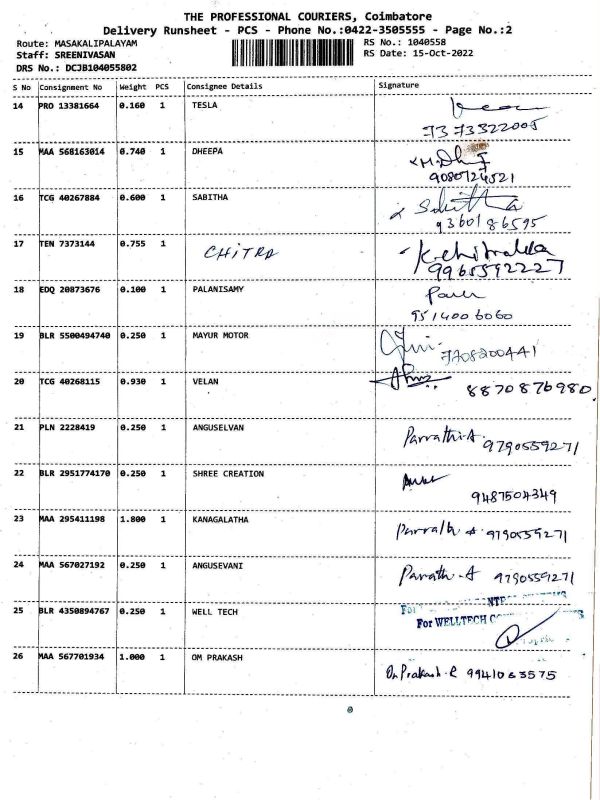 THE PROFESSIONAL COURIERS, Coimbatore
Delivery Runsheet - PCS - Phone No.:0422-3505555 - Page No.:2
Route: MASAKALIPALAYAM RS No.: 1040558
Staff: SREENIVASAN RS Date: 15-Oct-2022
DRS No.: DCJB104055802
S No Consignment No Weight PCS Consignee Details Signature
14 PRO 13381664 0.160 1 TESLA
7373322005
15 MAA 568163014 0.740 1 DHEEPA
9080124521
16 TCG 40267884 0.600 1 SABITHA Sabitha
9360186595
17 TEN 7373144 0.755 1 CHITRA K.chitralekha
9965592227
18 EDQ 20873676 0.100 1 PALANISAMY
9514006060
19 BLR 5500494740 0.250 1 MAYUR MOTOR
7708200441
20 TCG 40268115 0.930 1 VELAN
8870876980.
21 PLN 2228419 0.250 1 ANGUSELVAN Parvathi.A. 9790559271
22 BLR 2951774170 0.250 1 SHREE CREATION
9487504349
23 MAA 295411198 1.800 1 KANAGALATHA 9790559271
24 MAA 567027192 0.250 1 ANGUSEVANI Parvathi.A 9790559271
25 BLR 4350894767 0.250 1 WELL TECH For WELLTECH
26 MAA 567701934 1.000 1 OM PRAKASH Om Prakash.R 9941063575